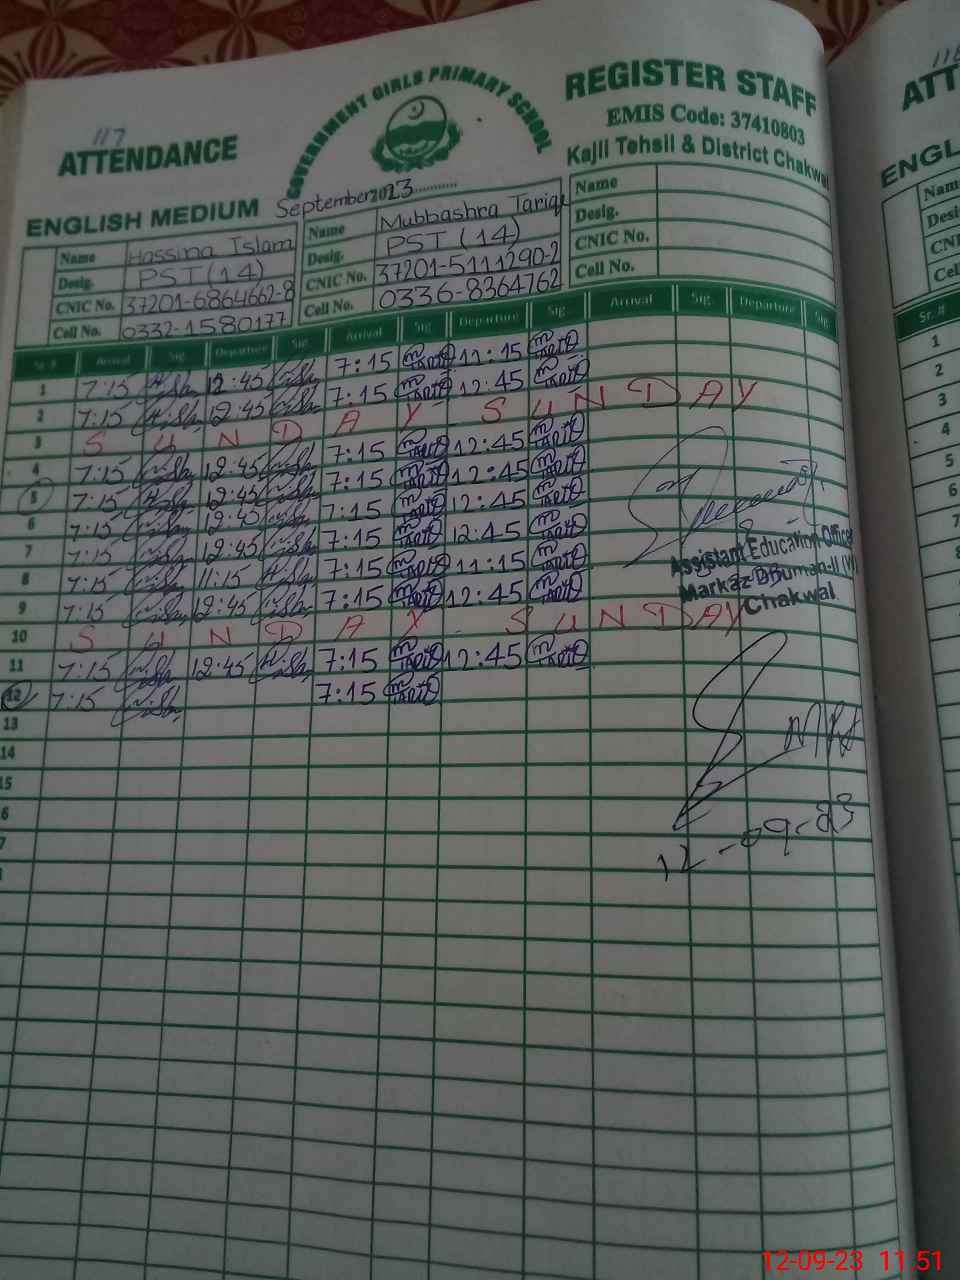 117
GOVERNMENT GIRLS PRIMARY SCHOOL
ATTENDANCE
REGISTER STAFF
EMIS Code: 37410803
Kajli Tehsil & District Chakwal
ENGLISH MEDIUM September 2023
Name Hassina Islam Name Mubbashra Tariq Name
Desig. PST (14) Desig. PST (14) Desig.
CNIC No. 37201-6864662-8 CNIC No. 37201-5111290-2 CNIC No.
Cell No. 0332-1580177 Cell No. 0336-8364762 Cell No.
Sr. # Arrival Sig. Departure Sig. Arrival Sig. Departure Sig. Arrival Sig. Departure Sig.
1 7:15 12:45 7:15 11:15
2 7:15 12:45 7:15 12:45
3 S U N D A Y S U N D A Y
4 7:15 12:45 7:15 12:45
5 7:15 12:45 7:15 12:45
6 7:15 12:45 7:15 12:45
7 7:15 12:45 7:15 12:45
8 7:15 11:15 7:15 11:15
9 7:15 12:45 7:15 12:45
10 S U N D A Y S U N D A Y
11 7:15 12:45 7:15 12:45
12 7:15 7:15
13
14
15
6
7
Assistant Education Officer
Markaz Dhuman-II (W)
Chakwal
12-09-23
118
ATT
ENGL
Nam
Desi
CNI
Cel
Sr. #
1
2
3
4
5
6
7
8
9
10
11
12
13
14
12-09-23 11:51